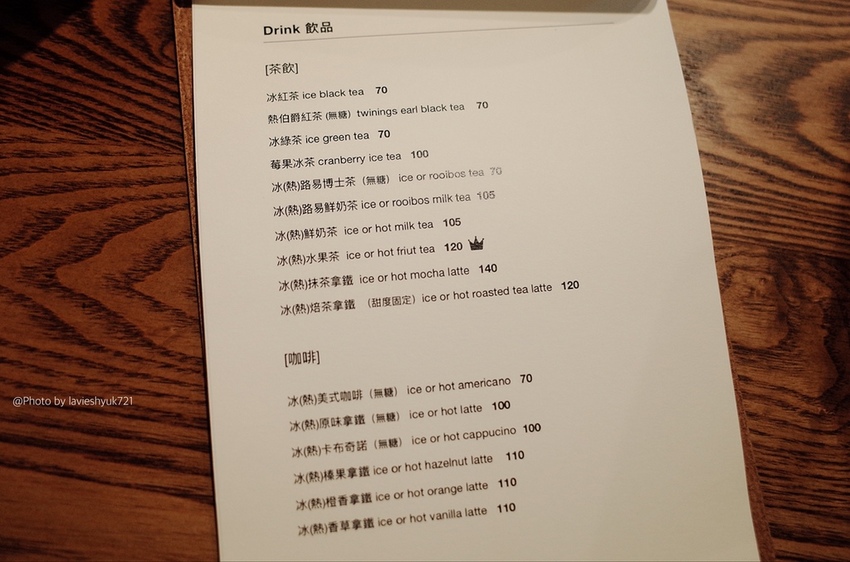 Drink 飲品
[茶飲]
冰紅茶 ice black tea 70
熱伯爵紅茶 (無糖) twinings earl black tea 70
冰綠茶 ice green tea 70
莓果冰茶 cranberry ice tea 100
冰(熱)路易博士茶（無糖） ice or rooibos tea 70
冰(熱)路易鮮奶茶 ice or rooibos milk tea 105
冰(熱)鮮奶茶 ice or hot milk tea 105
冰(熱)水果茶 ice or hot friut tea 120
冰(熱)抹茶拿鐵 ice or hot mocha latte 140
冰(熱)焙茶拿鐵 （甜度固定）ice or hot roasted tea latte 120
[咖啡]
冰(熱)美式咖啡（無糖） ice or hot americano 70
冰(熱)原味拿鐵（無糖） ice or hot latte 100
冰(熱)卡布奇諾（無糖） ice or hot cappucino 100
冰(熱)榛果拿鐵 ice or hot hazelnut latte 110
冰(熱)橙香拿鐵 ice or hot orange latte 110
冰(熱)香草拿鐵 ice or hot vanilla latte 110
@Photo by lavieshyuk721